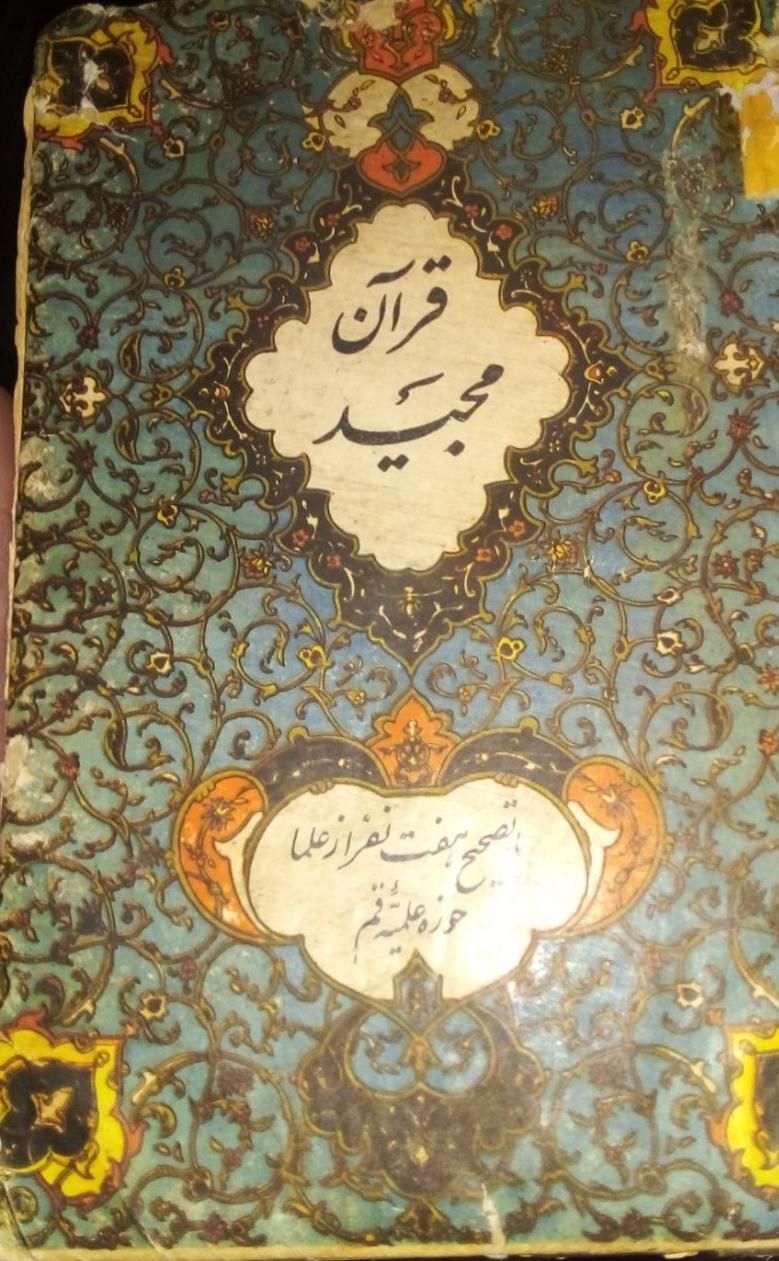 قرآن
مجید
با تصحیح هفت نفر از علما
حوزه علمیّهٔ قم